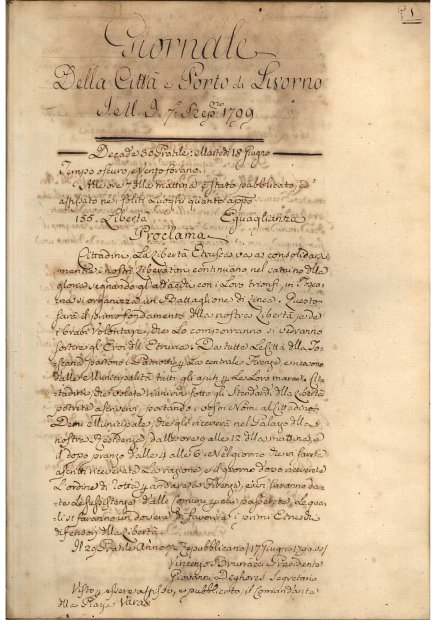 1
Giornale
Della Città e Porto di Livorno
Dell' A. 7.º Rep.no 1799
Decade 30 Pratile: Martedì 18 Giugno
Tempo oscuro, e vento forano.
Alle ore 7 della mattina è stato pubblicato, ed
affissato ne' soliti Luoghi quanto appo
155. Libertà Eguaglianza
Proclama
Cittadini, La Libertà Etrusca va a consolidar
mentre i nostri Liberatori continuano nel camino della
gloria segnando gli attacchi con i Loro trionfi, in Tosca
na si organizza un Battaglione di Linea. Questo
sarà il primo fondamento della nostra Libertà, e de
i bravi Volontari, che Lo comporranno si vedranno
sortire gli Eroi dell'Etruria. Da tutte Le Città della To
scana partono i Patriotti La centrale Firenze, e ricevono
dalle Municipalità tutti gli ajuti Le Loro marce. Cit
tadini, che volete riunirvi sotto gli Stendardi della Libertà
potrete ascrivervi, portando i vostri Nomi al Cittadino
Demi Municipale, che gli riceverà nel Palazzo della
nostra Residenza dalle ore 9 alle 12 della mattina, e
il dopo pranzo dalle 4 alle 6. Nel giorno che vi sarete
ascritti riceverete La razione, e il giorno dopo riceverete
L'ordine di Rotte andare a Firenze, e vi saranno da
te Le sussistenze dalle Comuni cui passerete, Le qua
li si faranno un dovere di favorire i primi Etruschi
difensori della Libertà.
Il 29 Pratile Anno 7 Repubblicano (17 Giugno 1799.)
Vincenzo Brunacci Presidente
Giovanni Deghores Segretario
Visto, e essere affisso, e pubblicato, il Comandante
della Piazza Varas